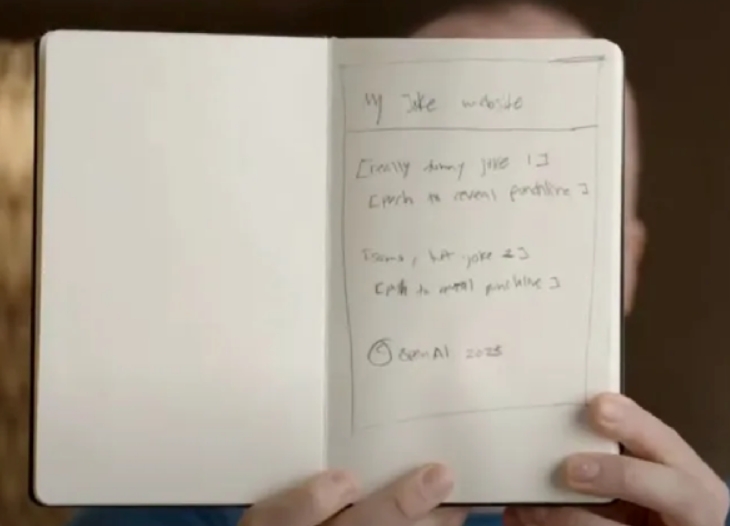 My Joke website
[really funny joke 1]
[push to reveal punchline]
[ joke 2]
[push to reveal punchline]
© OpenAI 2023